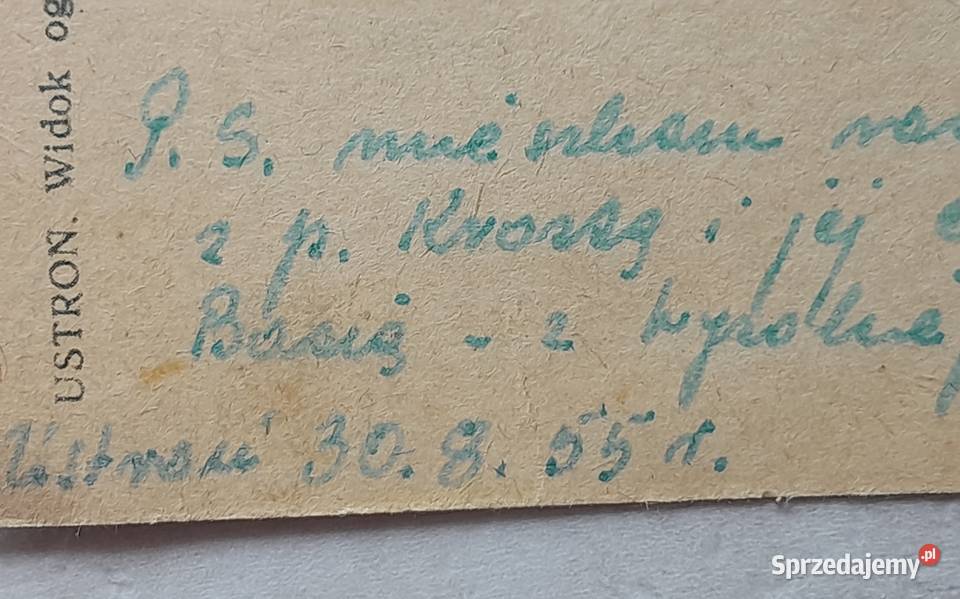 USTRON. Widok og
P. S. mieszkam raz
z p. Kroszą i jej
Basią - z Wysokiej
Ustroń 30.8.55 r.
Sprzedajemy.pl